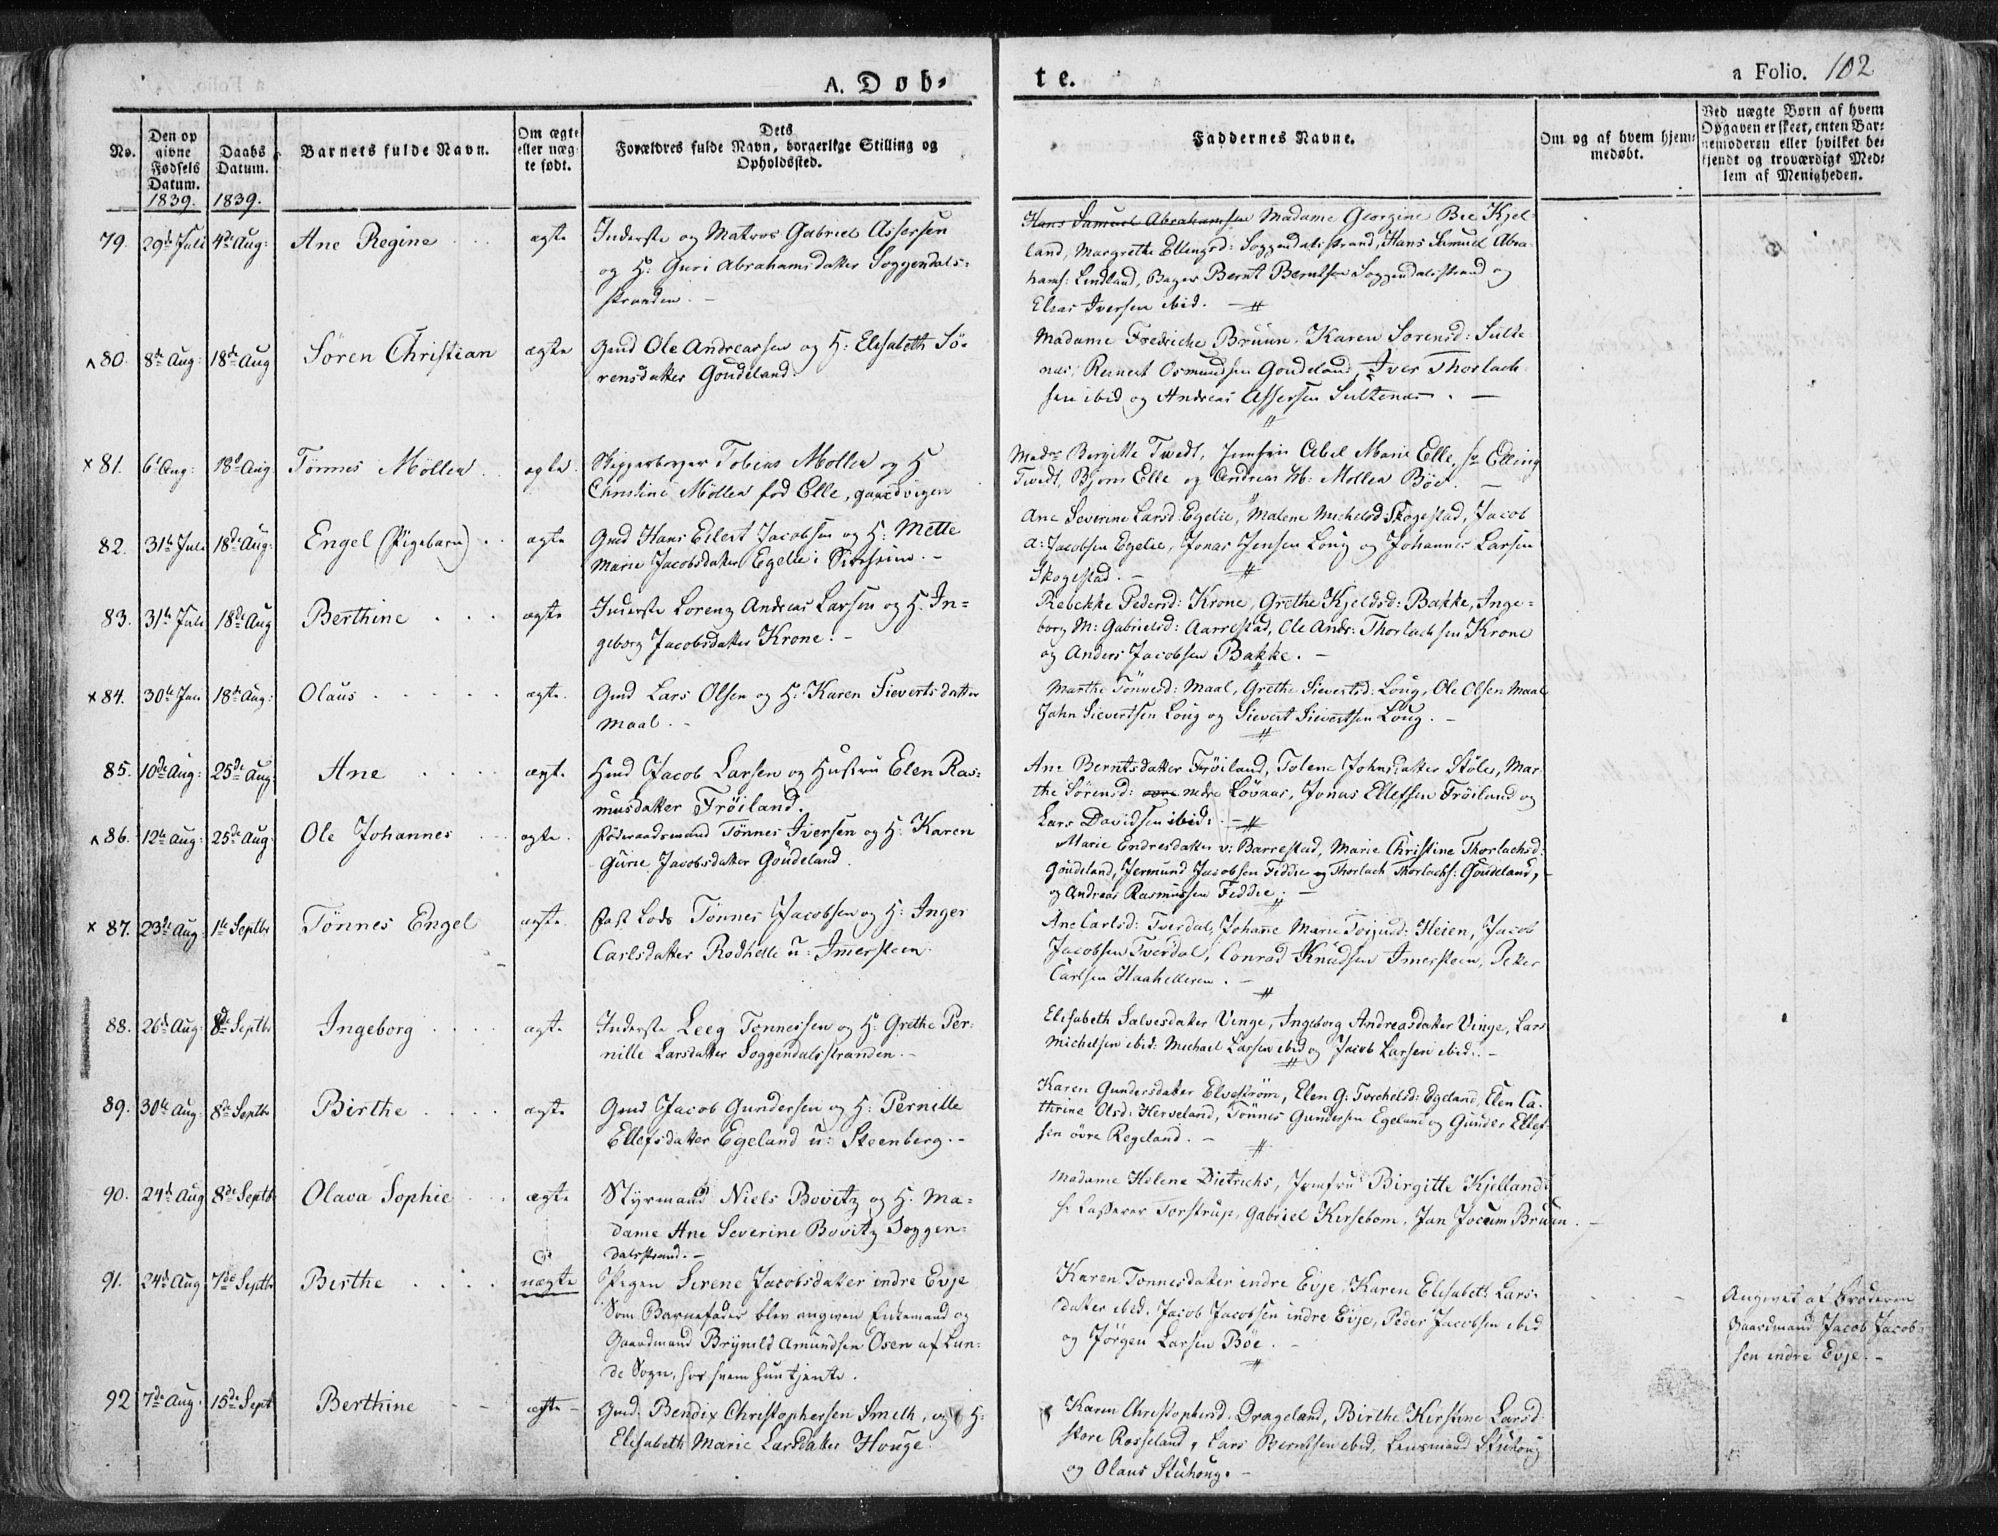 A. Døb-
te.
a Folio. 102
No.
Den op
givne
Fødsels
Datum.
1839.
Daabs
Datum.
1839.
Barnets fulde Navn.
Om ægte
eller uæg-
te født.
Dets
Forældres fulde Navn, borgerlige Stilling og
Opholdssted.
Faddernes Navne.
Om og af hvem hjem-
medøbt.
Ved uægte Børn af hvem
Opgaven er skeet, enten Bar-
nemoderen eller hvilket be-
kjendt og troværdigt Med-
lem af Menigheden.
79. 29de Juli 4de Aug: Ane Regine ægte
Inderste og Matros Gabriel Assersen
og H: Guri Abrahamsdatter Soggendals-
stranden. -
Hans Samuel Abrahamsen Madame Georgine Bee Kjel-
land, Margrethe Ellingsd: Soggendalsstrand, Hans Samuel Abra-
hams: Lindland, Bernt Berntsen Soggendalsstrand og
Elias Iversen ibid. -
80. 8de Aug: 18de Aug Søren Christian ægte
Gmd Ole Andreassen og H: Elisabeth Sø-
rensdatter Goudeland.
Madame Fredriche Bruun, Karen Sørensd: Sulte-
næs, Reinert Osmundsen Goudeland, Iver Thorlach-
sen ibid og Andreas Assersen Sultenæs. -
x 81. 6te Aug: 18de Aug Tønnes Mollea ægte
Skipperborger Tobias Mollea og H
Christine Mollea fød Elle, gaardvigen
Madme Birgitte Tvedt, Jomfru Abel Marie Elle, hr Elling
Tvedt, Bjørn Elle og Andreas Mollea Böe. -
82. 31te Juli 18de Aug: Engel (Pigebarn) ægte
Gmd Hans Eilert Jacobsen og H: Mette
Marie Jacobsdatter Egelie i -
Ane Severine Larsd: Egelie, Malene Michelsd: Skogestad, Jacob
A: Jacobsen Egelie, Jonas Jensen Loug og Johannes Larsen
Skogestad. -
83. 31te Juli 18de Aug Berthine ægte
Inderste Lorenz Andreas Larsen og H. In-
geborg Jacobsdatter Krone. -
Rebekke Pedersd: Krone, Grethe Kjeldsd: Bakke, Inge-
borg M: Gabrielsd: Aarrestad, Ole Andr: Thorlachsen Krone
og Anders Jacobsen Bakke. -
x 84. 30te 18de Aug: Olaus ægte
Gmd Lars Olsen og H: Karen Sievertsdatter
Maal. -
Marthe Tønnesd: Maal, Grethe Sievertsd: Loug, Ole Olsen Maal
John Sievertsen Loug og Sievert Sievertsen Loug. -
85. 10de Aug: 25de Aug: Ane ægte
Hmd Jacob Larsen og Hustru Elen Ras-
musdatter Frøiland.
Ane Berntsdatter Frøiland, Tolene Johnsdatter Støle, Mar-
the Sørensd: nedre Løvaas, Jonas Ellefsen Frøiland og
Lars Davidsen ibid: -
86. 12te Aug: 25de Aug Ole Johannes ægte
Føderaadsmand Tønnes Iversen og H: Karen
Gurie Jacobsdatter Goudeland.
Marie Endresdatter v: Barrestad, Marie Christine Thorlachsd:
Goudeland, Jermund Jacobsen Feddie og Thorlach Thorlachs: Goudeland,
og Andreas Rasmussen Feddie. -
x 87. 23de Aug: 1te Septbr Tønnes Engel ægte
Fast Lods Tønnes Jacobsen og H: Inger
Carlsdatter Rødhelle u: Imersteen.
Ane Carlsd: Tverdal, Johanne Marie Heien, Jacob
Jacobsen Tverdal, Conrad Knudsen Imersteen, Petter
Carlsen Haahelleren. -
88. 26de Aug: 8de Septbr Ingeborg ægte
Inderste Leeg Tønnessen og H: Grethe Per-
nille Larsdatter Soggendalsstranden. -
Elisabeth Salvesdatter Vinge, Ingeborg Andreasdatter Vinge, Lars
Michelsen ibid: Michael Larsen ibid og Jacob Larsen ibid. -
89. 30te Aug: 8de Septbr Birthe ægte
Gmd Jacob Gundersen og H: Pernille
Ellefsdatter Egeland u: Steenberg. -
Karen Gundersdatter Elvestrøm, Elen G: Torchelsd: Egeland, Elen Ca-
thrine Olsd: Herveland, Tønnes Gundersen Egeland og Gunder Ellef-
sen øvre Regeland. -
90. 24de Aug 8de Septbr Olava Sophie ægte
Styrmand Niels Bovitz og H. Ma-
dame Ane Severine Bovitz Soggen-
dalsstrand. -
Madame Helene Dietrichs, Jomfru Birgitte Kjelland,
Torstrup, Gabriel Kirsebom, Jan Jocum Bruun. -
91. 24de Aug 7de Septbr Birthe uægte
Pigen Serene Jacobsdatter indre Evje
Som Barnefader blev angiven Enkemand og
Gaardmand Brynild Amundsen Osen af Lun-
de Sogn, hos hvem hun tjente.
Karen Tonnesdatter indre Evje, Karen Elisabeth Lars-
datter ibid, Jacob Jacobsen indre Evje, Peder Jacobsen ibid
og Jörgen Larsen Böe. -
Angivet af Broderen
Gaardmand Jacob Jacob-
sen indre Evje. -
92 7de Aug. 15de Sept Berthine ægte
Gmd. Bendix Christophersen Smith, og H:
Elisabeth Marie Larsdatter Houge.
Karen Christophersd. Drageland, Birthe Kirstine Larsd
store Rosseland, Lars Berntsen ibid, Lensmand Stuhoug
og Olaus Stuhoug. -